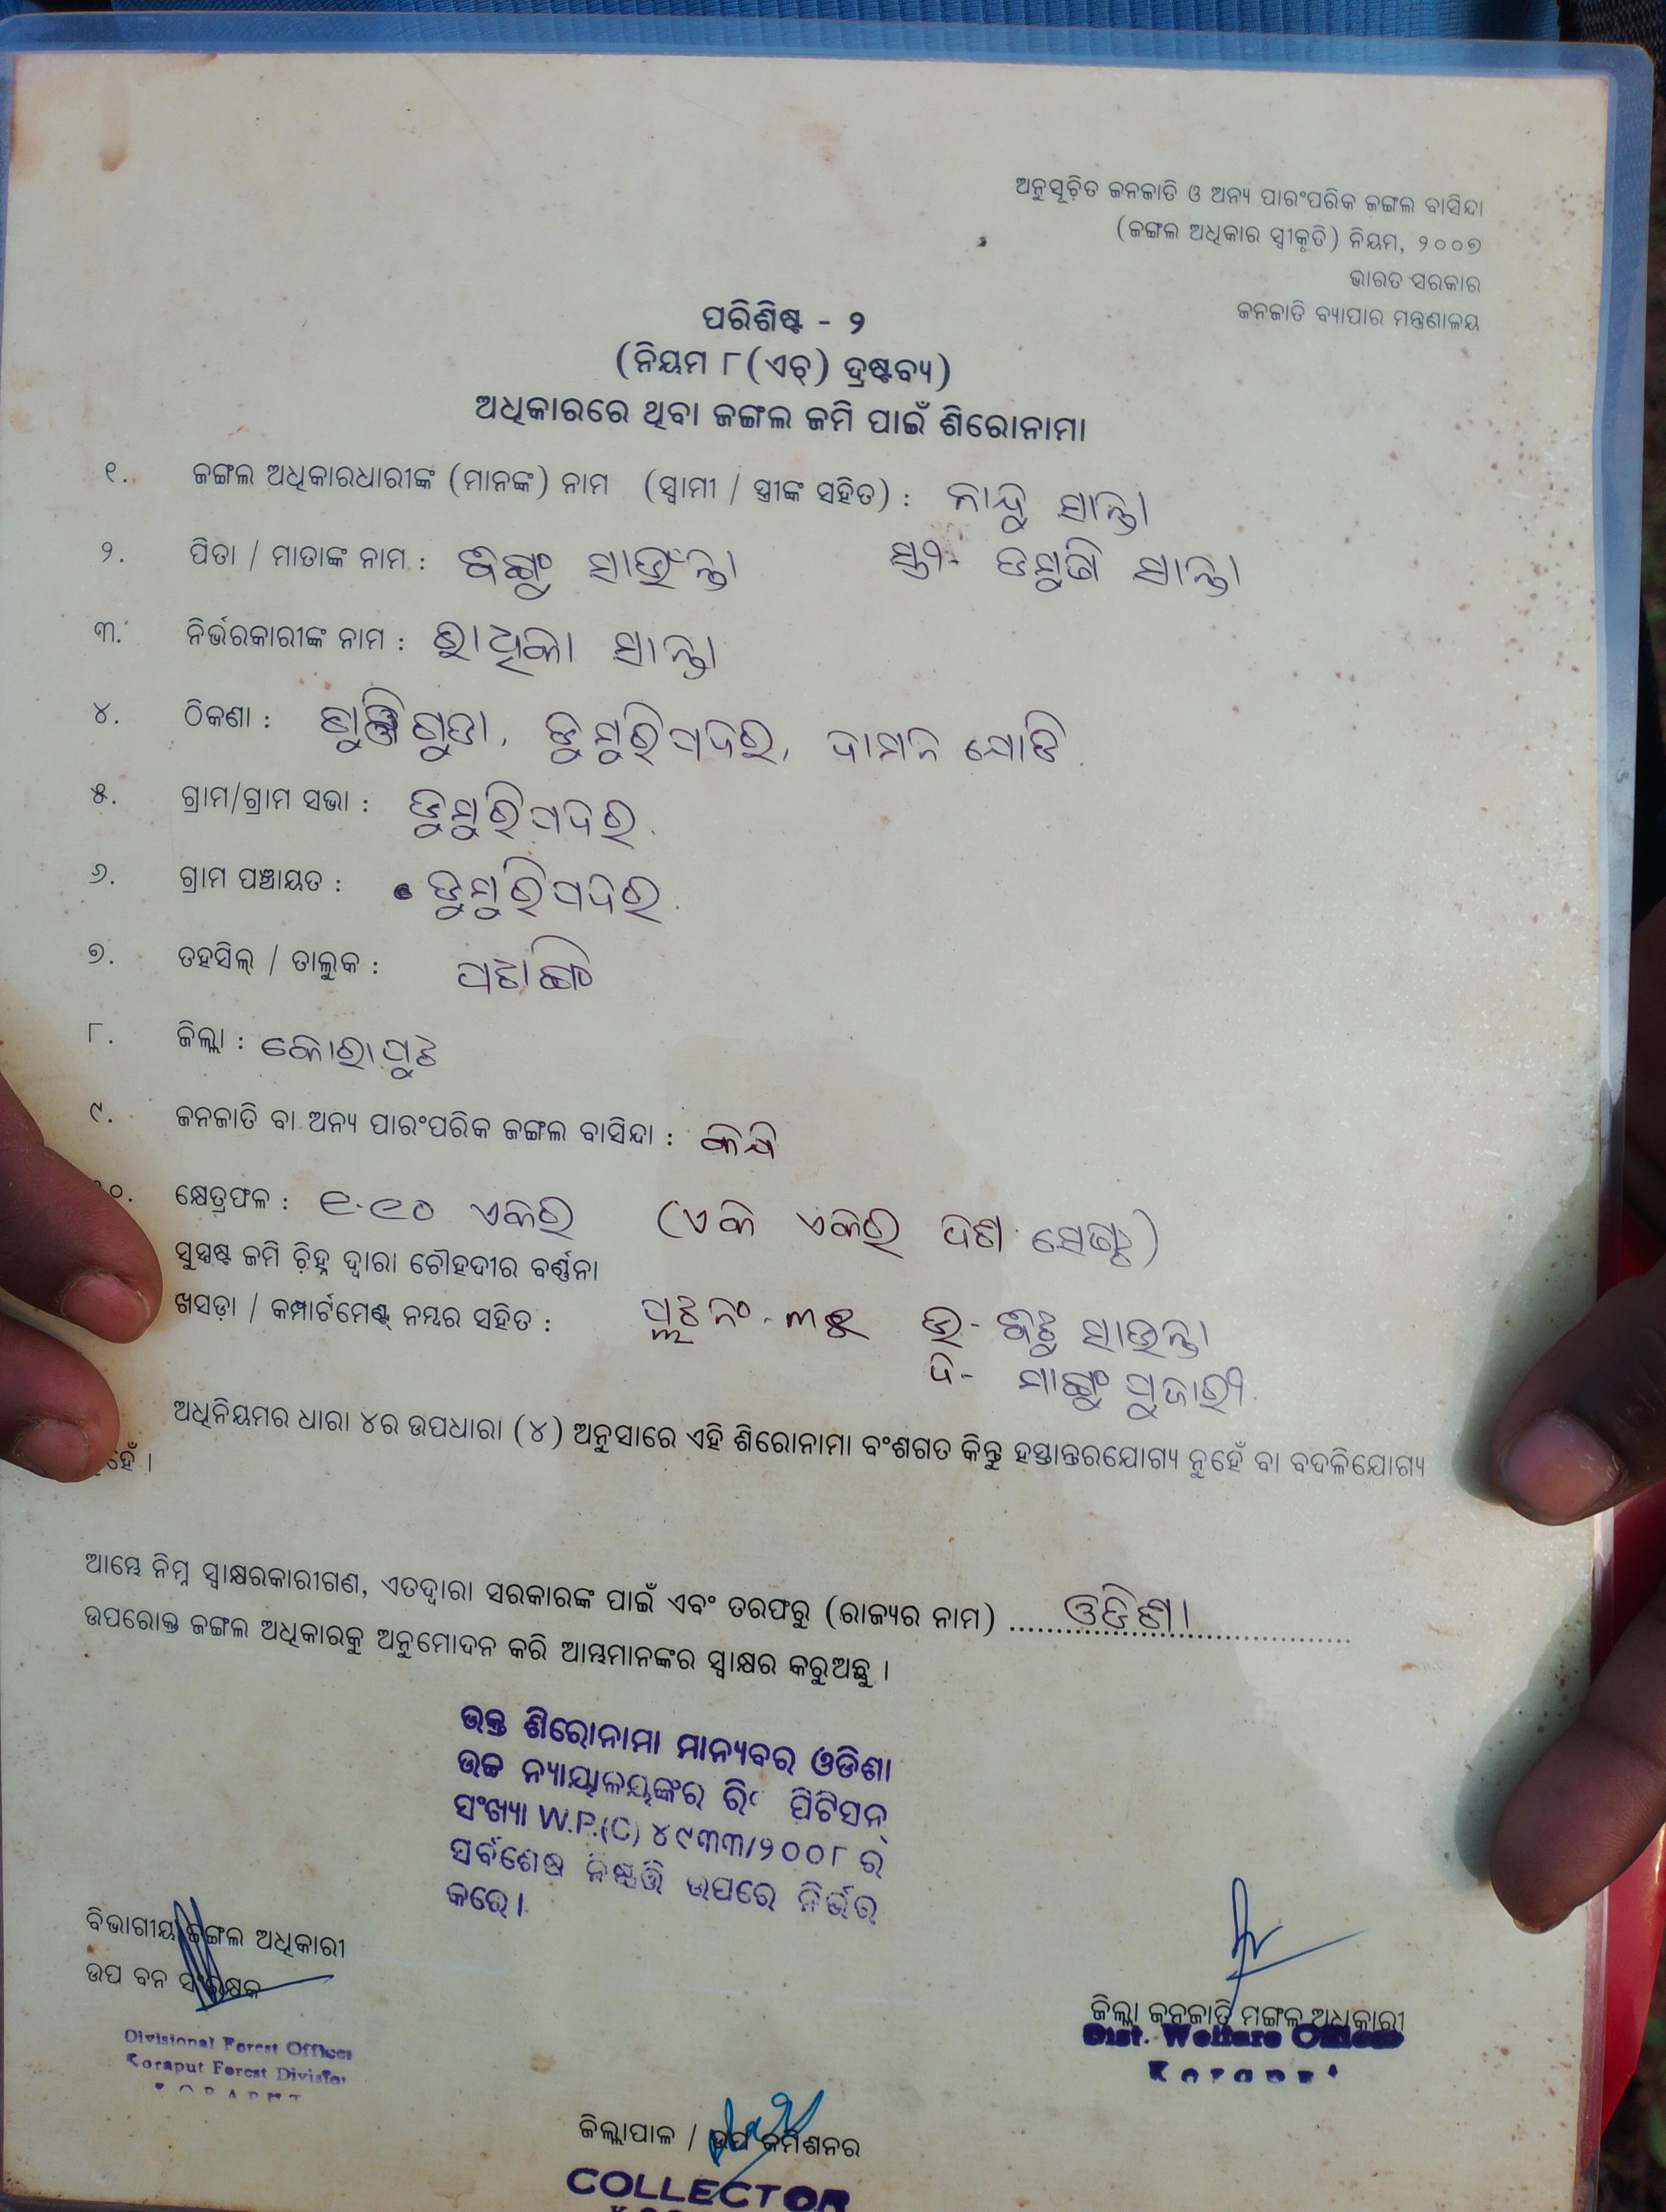 ଅନୁସୂଚିତ ଜନଜାତି ଓ ଅନ୍ୟ ପାରଂପରିକ ଜଙ୍ଗଲ ବାସିନ୍ଦା
(ଜଙ୍ଗଲ ଅଧିକାର ସ୍ୱୀକୃତି) ନିୟମ, ୨୦୦୭
ଭାରତ ସରକାର
ଜନଜାତି ବ୍ୟାପାର ମନ୍ତ୍ରଣାଳୟ
ପରିଶିଷ୍ଟ - ୨
(ନିୟମ ୮(ଏଚ୍) ଦ୍ରଷ୍ଟବ୍ୟ)
ଅଧିକାରରେ ଥିବା ଜଙ୍ଗଲ ଜମି ପାଇଁ ଶିରୋନାମା
୧. ଜଙ୍ଗଲ ଅଧିକାରଧାରୀଙ୍କ (ମାନଙ୍କ) ନାମ (ସ୍ୱାମୀ / ସ୍ତ୍ରୀଙ୍କ ସହିତ) : ସାନ୍ତା
୨. ପିତା / ମାତାଙ୍କ ନାମ : ସ୍ତ୍ରୀ- ସାନ୍ତା
୩. ନିର୍ଭରକାରୀଙ୍କ ନାମ : ରାଧିକା ସାନ୍ତା
୪. ଠିକଣା : ଡୁମୁରିପଦର, ଦାମନ ଯୋଡି
୫. ଗ୍ରାମ/ଗ୍ରାମ ସଭା : ଡୁମୁରିପଦର
୬. ଗ୍ରାମ ପଞ୍ଚାୟତ : ଡୁମୁରିପଦର
୭. ତହସିଲ୍ / ତାଲୁକ : ପଟାଙ୍ଗି
୮. ଜିଲ୍ଲା : କୋରାପୁଟ
୯. ଜନଜାତି ବା ଅନ୍ୟ ପାରଂପରିକ ଜଙ୍ଗଲ ବାସିନ୍ଦା :
୧୦. କ୍ଷେତ୍ରଫଳ : ୧.୧୦ ଏକର (ଏକ ଏକର ଦଶ ସେଣ୍ଟ)
ସୁସ୍ପଷ୍ଟ ଜମି ଚିହ୍ନ ଦ୍ୱାରା ଚୌହଦୀର ବର୍ଣ୍ଣନା
ଖସଡ଼ା / କମ୍ପାର୍ଟମେଣ୍ଟ ନମ୍ବର ସହିତ : ପ୍ଲଟ ନଂ. ଉ- ସାଉନ୍ତା
ଦ- ପୁଜାରୀ
ଅଧିନିୟମର ଧାରା ୪ର ଉପଧାରା (୪) ଅନୁସାରେ ଏହି ଶିରୋନାମା ବଂଶଗତ କିନ୍ତୁ ହସ୍ତାନ୍ତରଯୋଗ୍ୟ ନୁହେଁ ବା ବଦଳିଯୋଗ୍ୟ
ନୁହେଁ ।
ଆମ୍ଭେ ନିମ୍ନ ସ୍ୱାକ୍ଷରକାରୀଗଣ, ଏତଦ୍ଦ୍ୱାରା ସରକାରଙ୍କ ପାଇଁ ଏବଂ ତରଫରୁ (ରାଜ୍ୟର ନାମ) ଓଡିଶା
ଉପରୋକ୍ତ ଜଙ୍ଗଲ ଅଧିକାରକୁ ଅନୁମୋଦନ କରି ଆମ୍ଭମାନଙ୍କର ସ୍ୱାକ୍ଷର କରୁଅଛୁ ।
ଉକ୍ତ ଶିରୋନାମା ମାନ୍ୟବର ଓଡିଶା
ଉଚ୍ଚ ନ୍ୟାୟାଳୟଙ୍କର ରିଟ ପିଟିସନ୍
ସଂଖ୍ୟା W.P.(C) ୪୯୩୩/୨୦୦୮ ର
ସର୍ବଶେଷ ନିଷ୍ପତ୍ତି ଉପରେ ନିର୍ଭର
କରେ।
ବିଭାଗୀୟ ଜଙ୍ଗଲ ଅଧିକାରୀ
ଉପ ବନ ସଂରକ୍ଷକ
Divisional Forest Officer
Koraput Forest Division
KORAPUT
ଜିଲ୍ଲା ଜନଜାତି ମଙ୍ଗଳ ଅଧିକାରୀ
Dist. Welfare Officer
Koraput
ଜିଲ୍ଲାପାଳ / ଉପ କମିଶନର
COLLECTOR